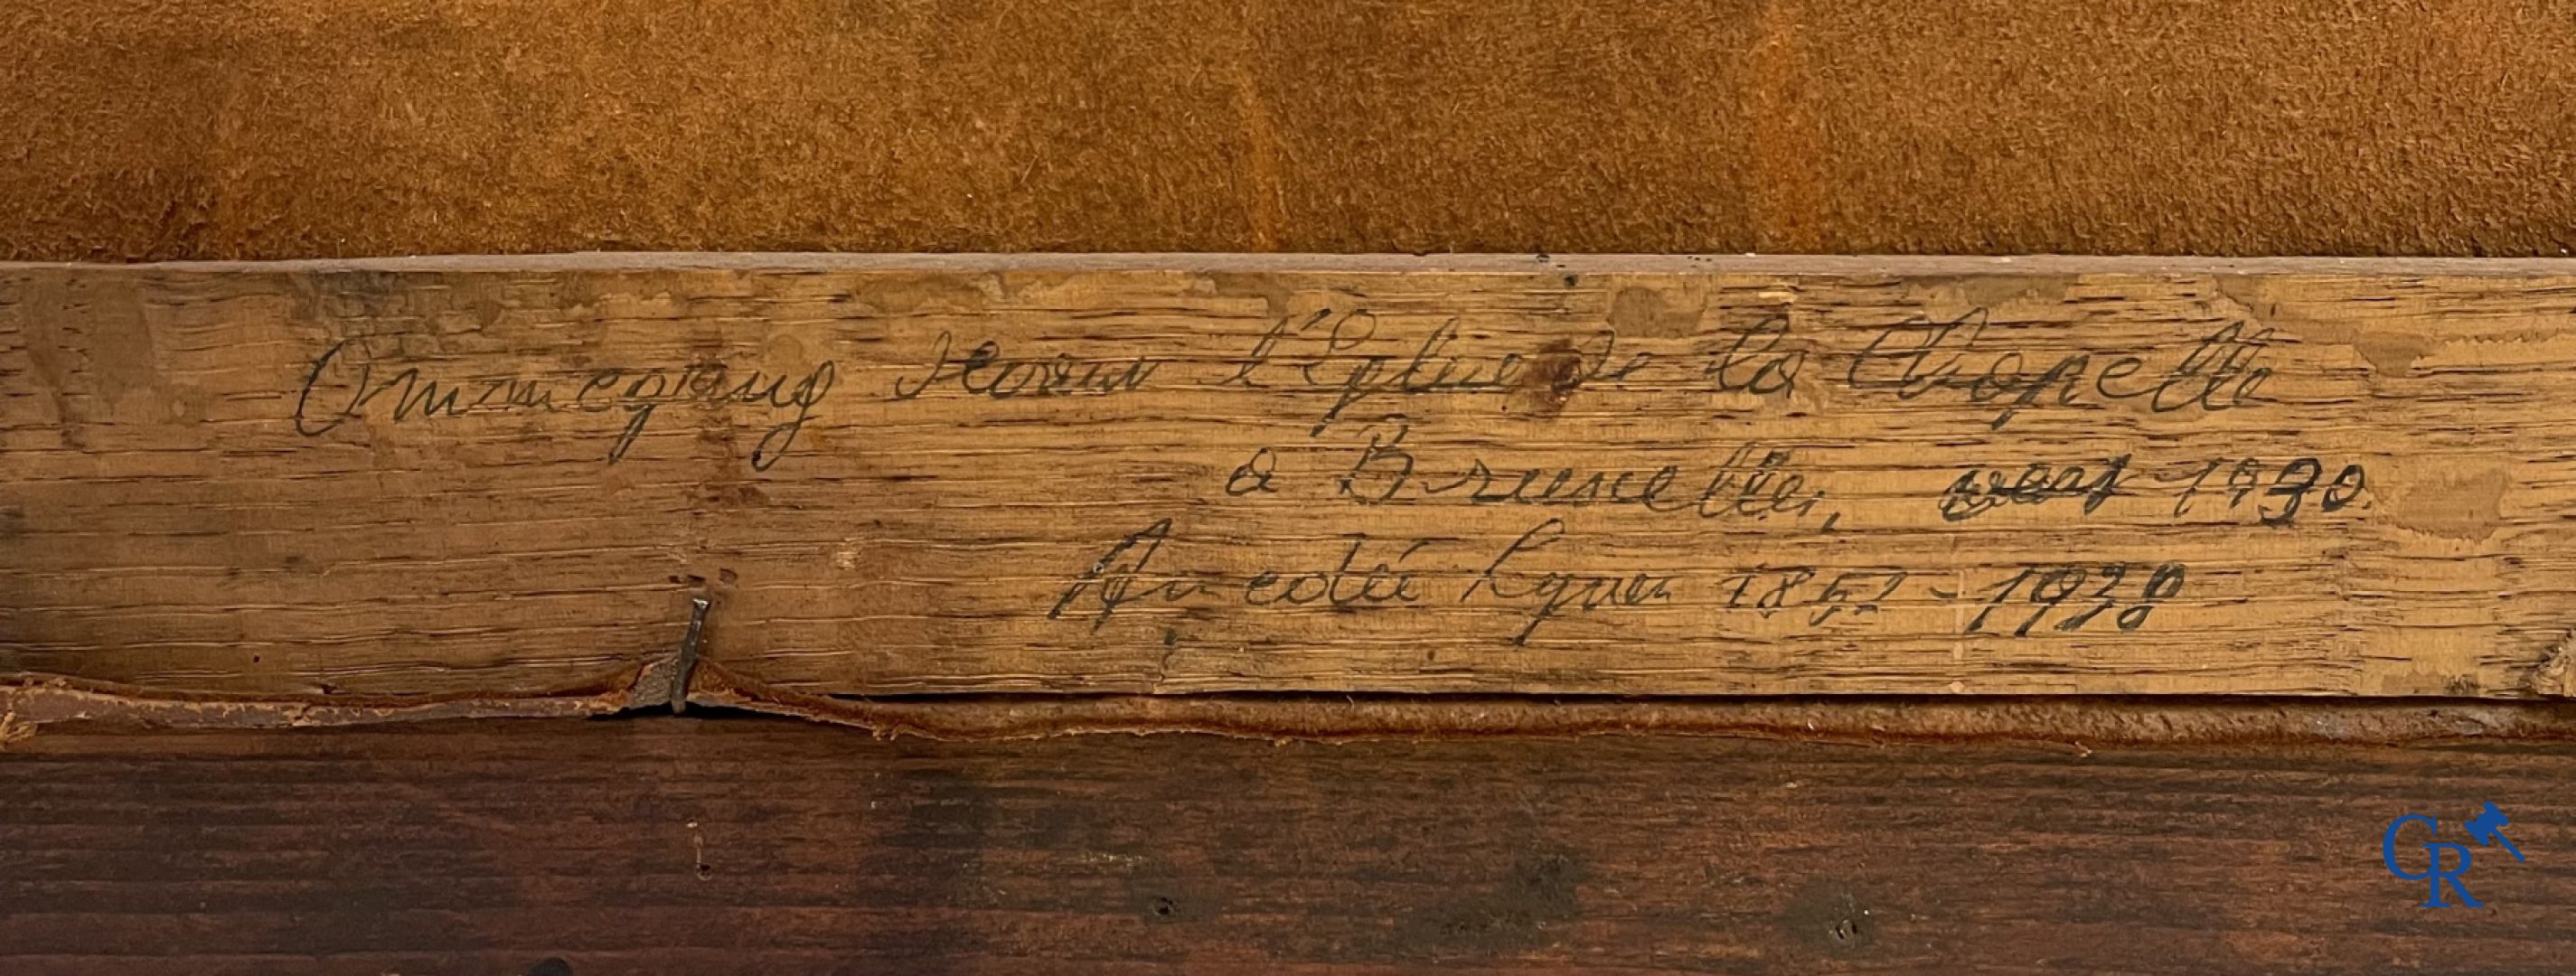 Ommegang devant l'Église de la Chapelle
à Bruxelles, vers 1930.
Amedée Lynen 1852 - 1938
CR